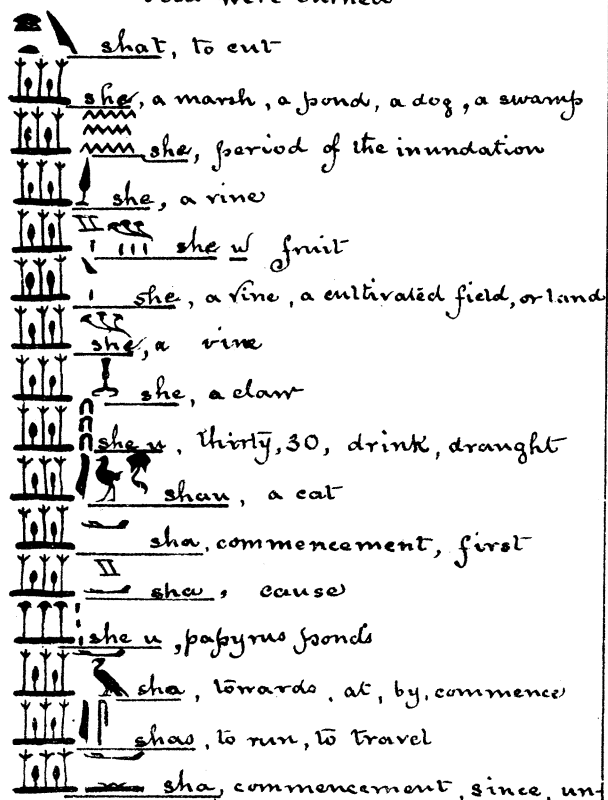 were burned
shat, to cut
she, a marsh, a pond, a dog, a swamp
she, period of the inundation
she, a vine
she u fruit
she, a vine, a cultivated field, or land
she, a vine
she, a claw
she u, thirty, 30, drink, draught
shau, a cat
sha, commencement, first
sha, cause
she u, papyrus ponds
sha, towards, at, by, commence
shas, to run, to travel
sha, commencement, since, un-